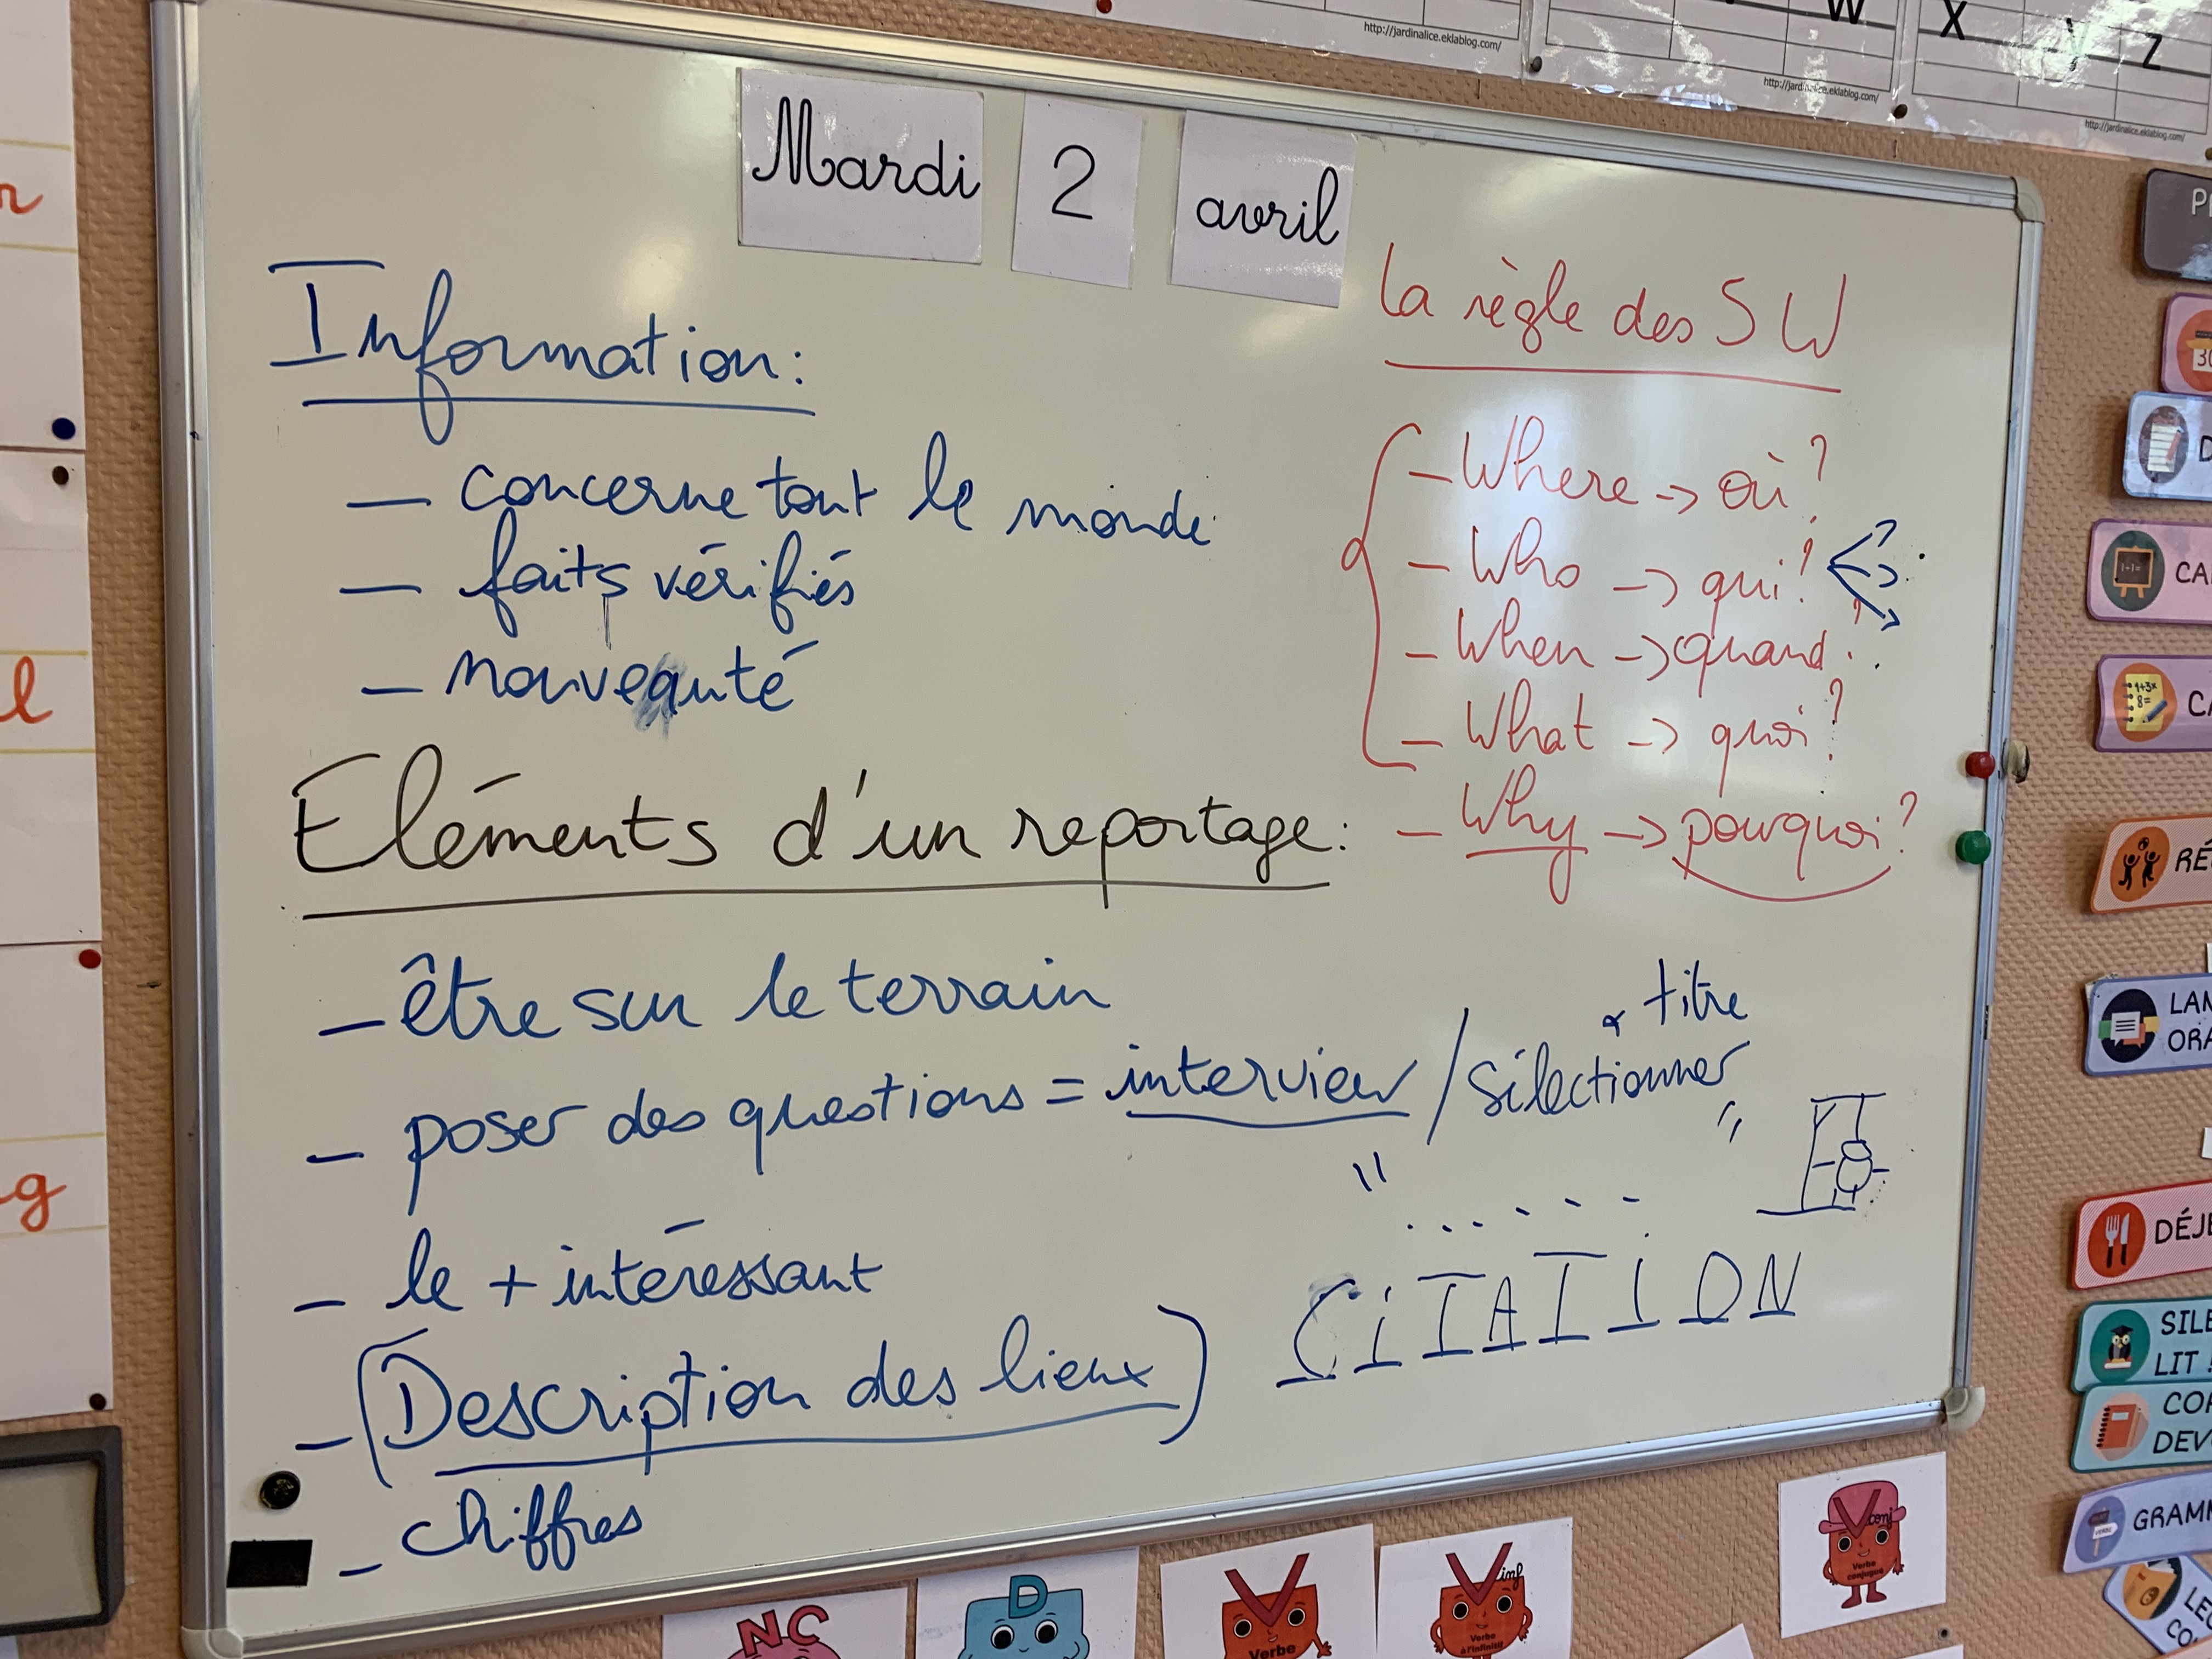 http://jardinalice.eklablog.com/
W
http://jardinalice.eklablog.com/
X Y Z
http://jardinalice.eklablog.com/
Mardi 2 avril
Information:
– concerne tout le monde
– faits vérifiés
– nouveauté
La règle des 5 W
– Where -> où ?
– Who -> qui ?
– When -> quand ?
– What -> quoi ?
– Why -> pourquoi ?
Eléments d'un reportage :
– être sur le terrain
– poser des questions = interview / sélectionner
titre
" "
– le + intéressant
– (Description des lieux)
CiTATION
– chiffres
l
g
30
CA
CA
RÉ
LAN
ORA
DÉJE
SILE
LIT !
COR
DEV
GRAMM
LE
CO
NC
D
V
Verbe
V inf
Verbe
à l'infinitif
V conj
Verbe
conjugué